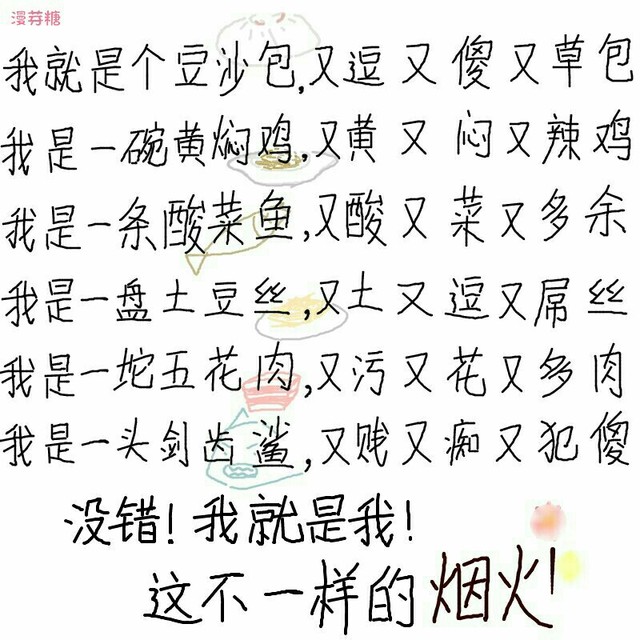 漫荇糖
我就是个豆沙包,又逗又傻又草包
我是一碗黄焖鸡,又黄又闷又辣鸡
我是一条酸菜鱼,又酸又菜又多余
我是一盘土豆丝,又土又逗又屌丝
我是一坨五花肉,又污又花又多肉
我是一头剑齿鲨,又贱又痴又犯傻
没错!我就是我!
这不一样的烟火!